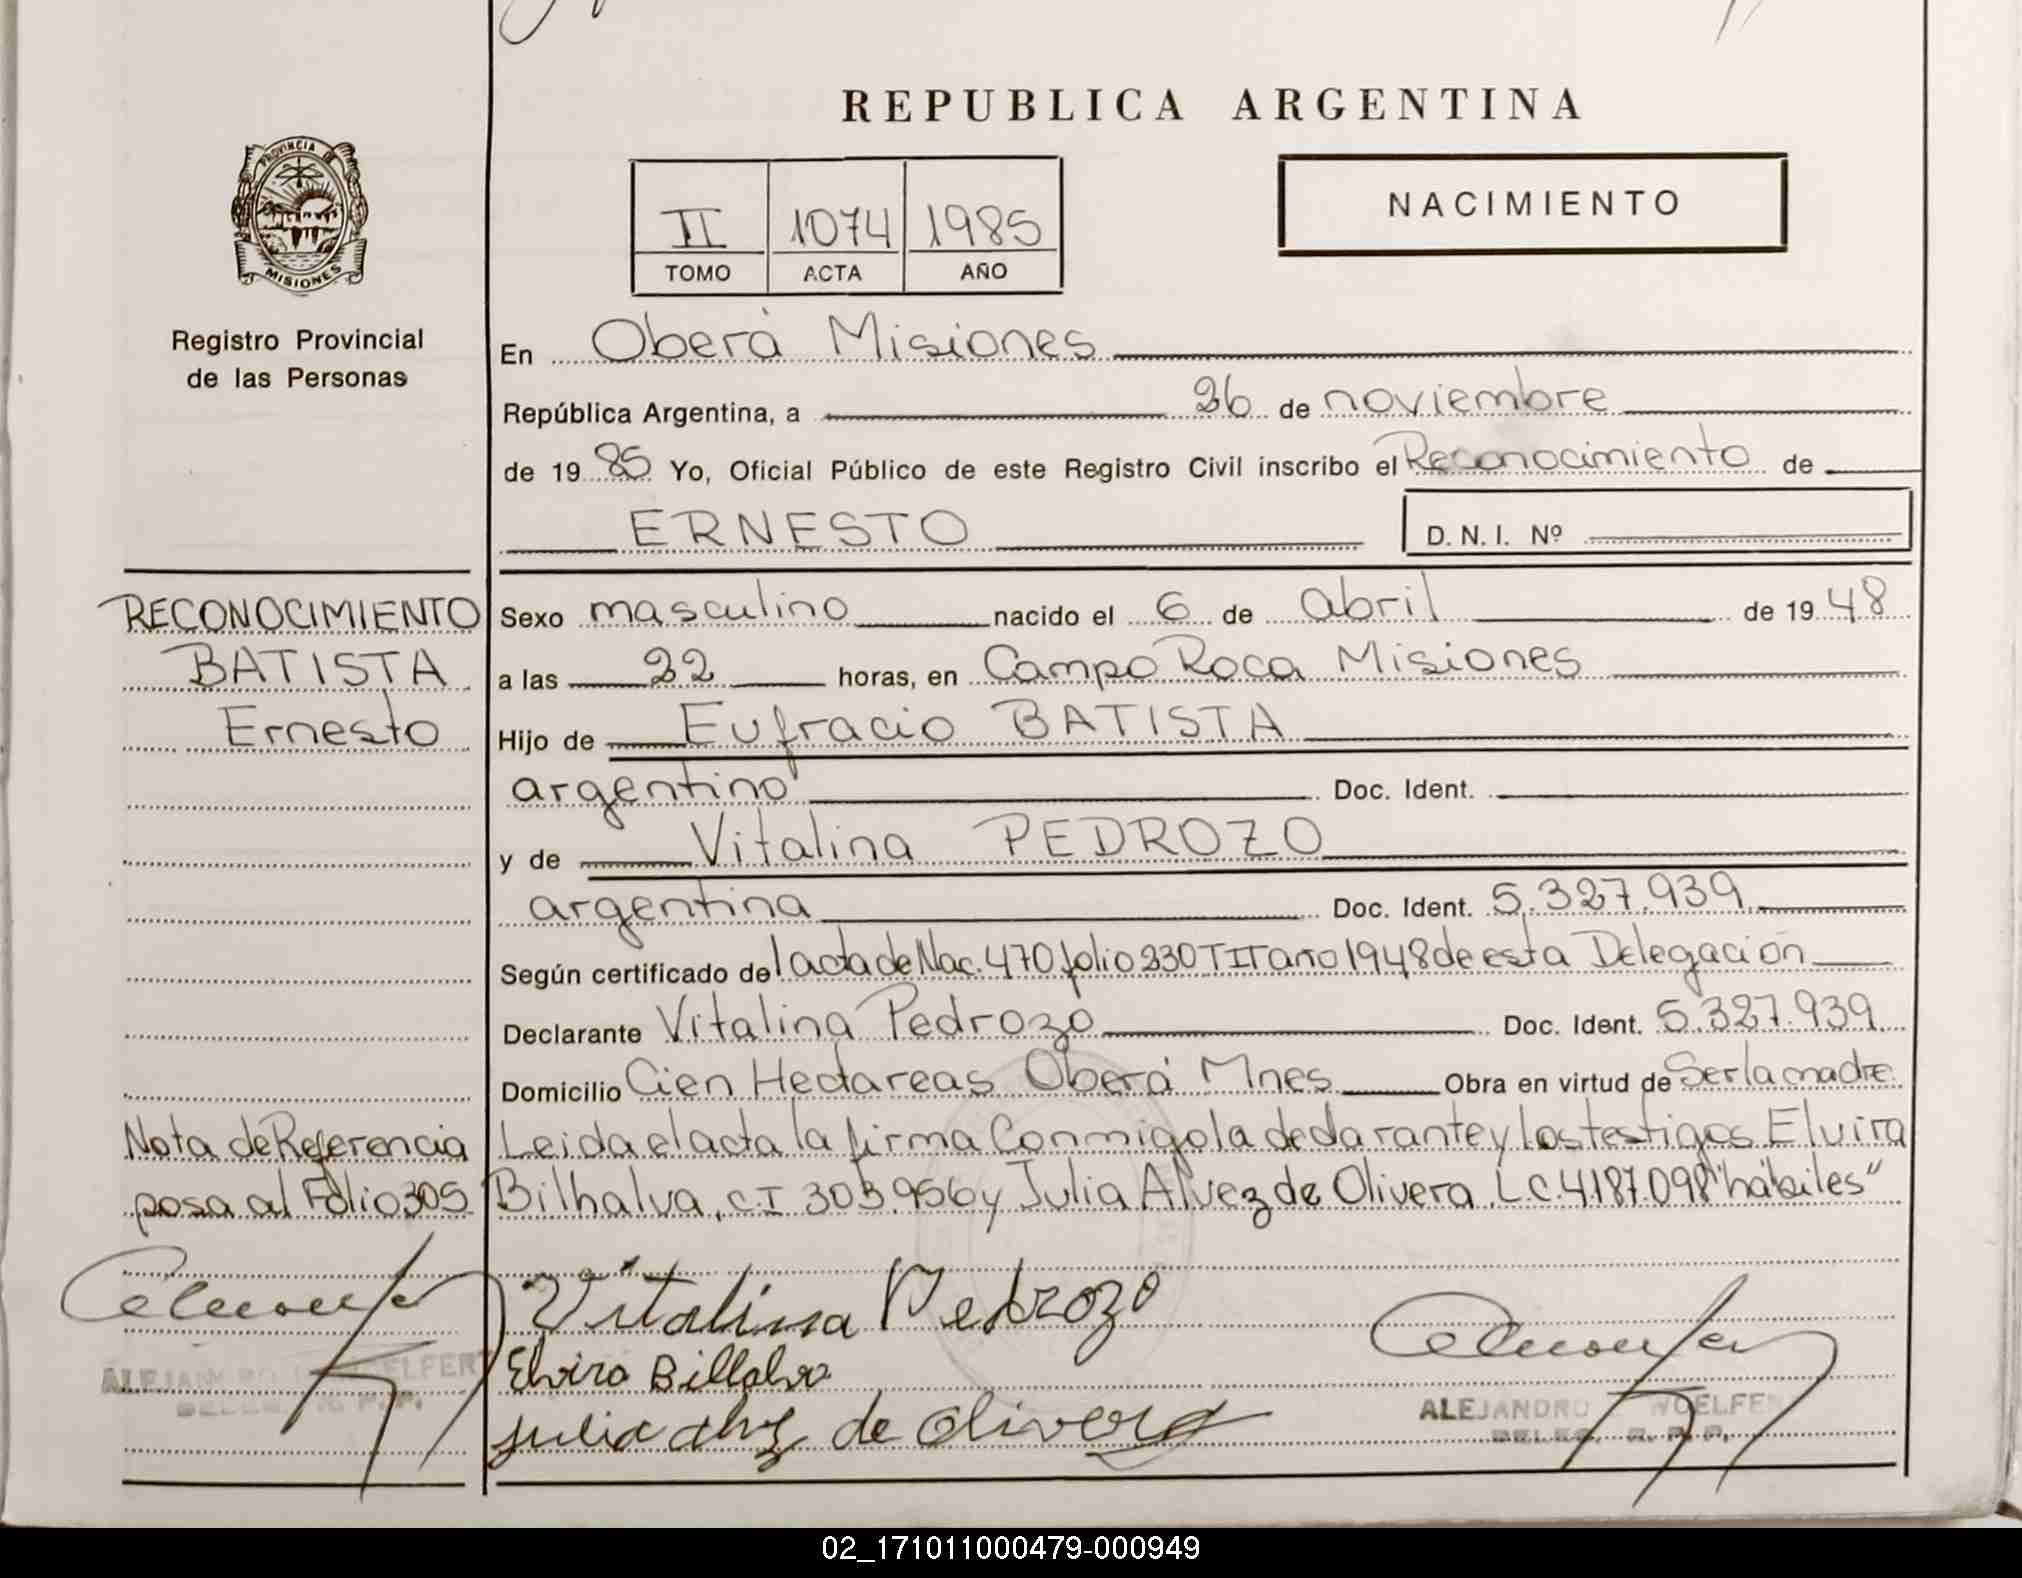 REPUBLICA ARGENTINA
PROVINCIA DE
MISIONES
II 1074 1985
TOMO ACTA AÑO
NACIMIENTO
Registro Provincial
de las Personas
En Oberá Misiones
República Argentina, a 26 de noviembre
de 1985 Yo, Oficial Público de este Registro Civil inscribo el Reconocimiento de
ERNESTO D. N. I. Nº
RECONOCIMIENTO
BATISTA
Ernesto
Sexo masculino nacido el 6 de abril de 1948
a las 22 horas, en Campo Roca Misiones
Hijo de Eufracio BATISTA
argentino Doc. Ident.
y de Vitalina PEDROZO
argentina Doc. Ident. 5.327.939
Según certificado del acta de Nac. 470 folio 230 T II año 1948 de esta Delegación
Declarante Vitalina Pedrozo Doc. Ident. 5.327.939
Domicilio Cien Hectareas Oberá Mnes Obra en virtud de Ser la madre
Nota de Referencia
pasa al Folio 305
Leida el acta la firma Conmigo la declarante y los testigos Elvira
Bilhalva, C.I 303.956 y Julia Alvez de Olivera L.C. 4.187.098 "hábiles"
Vitalina Pedrozo
Elvira Billalva
Julia alvz de olivera
ALEJANDRO WOELFERT
DELEG. R. P. P.
ALEJANDRO WOELFE
DELEG. R. P. P.
02_171011000479-000949